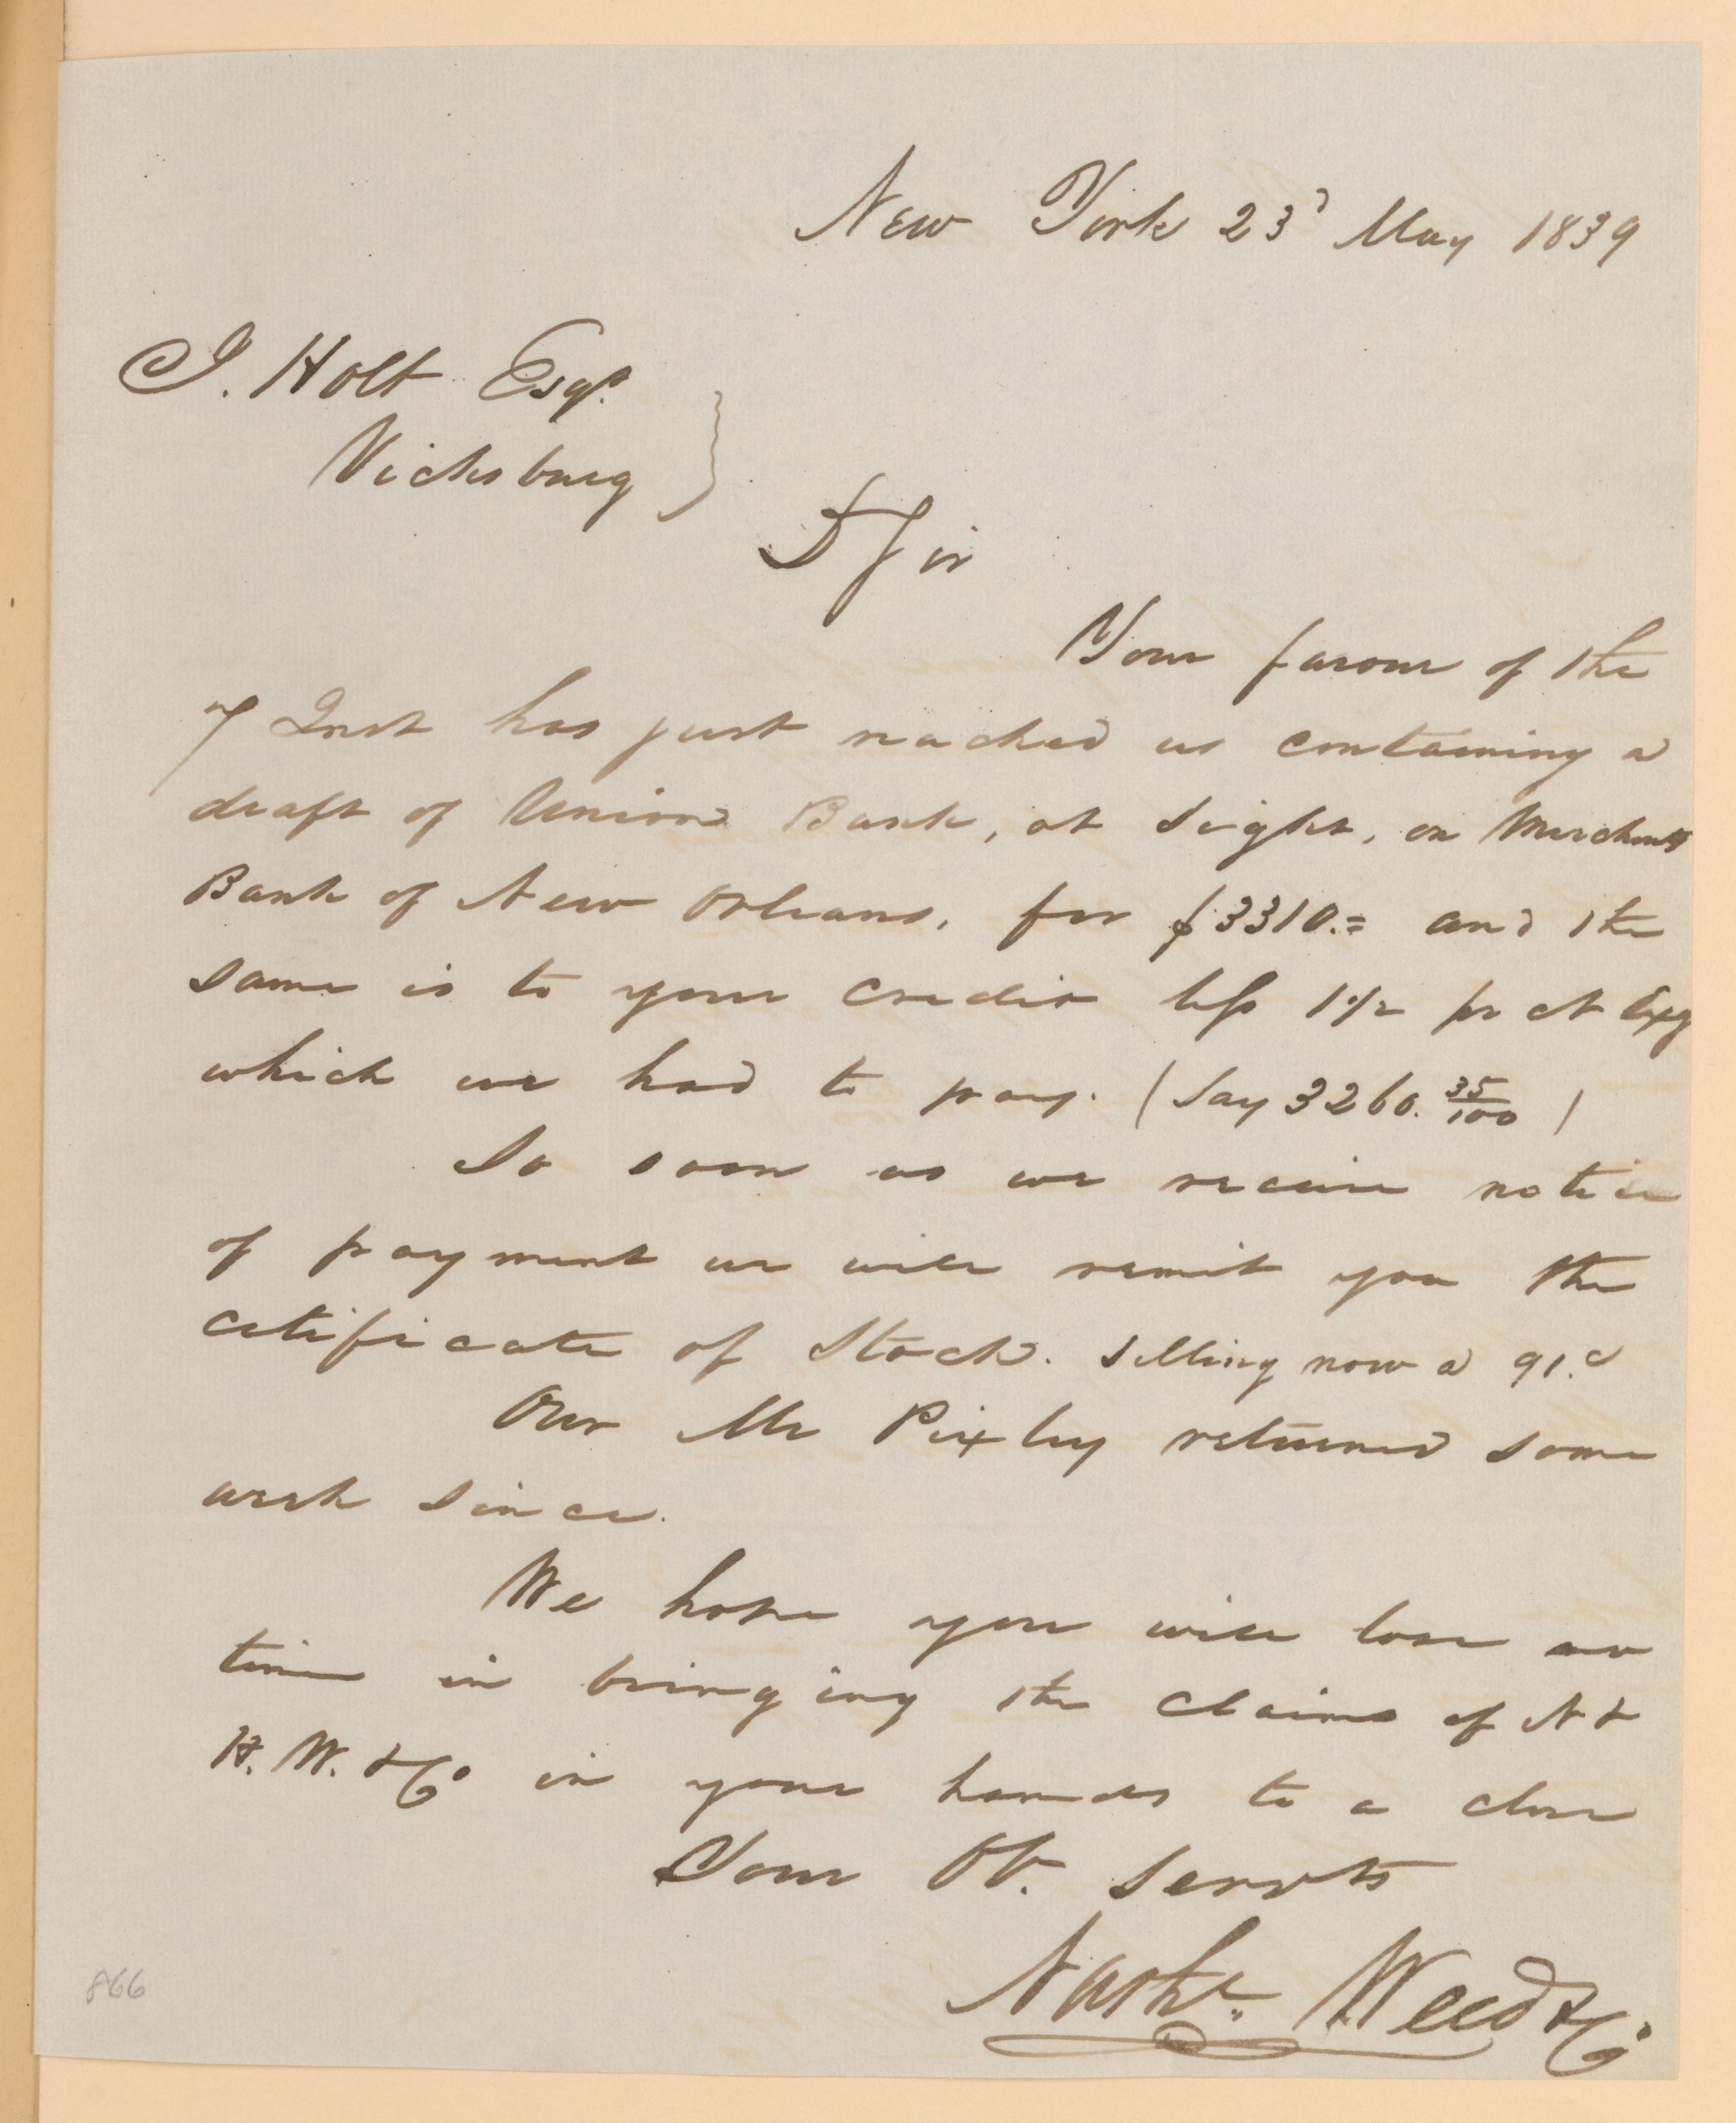 New York 23d May 1839
J. Holt Esqr.
Vicksburg
D Sir
Your favour of the
7 Inst has just reached us containing a
draft of Union Bank, at sight, on Merchants
Bank of New Orleans, for $3310.= and the
same is to your credit less 1 1/2 pr ct Exg
which we had to pay. (Say 3260. 35/100 )
So soon as we receive notice
of payment we will remit you the
cetificate of Stock. selling now a 91.
Our Mr Pixley returned some
week since.
We hope you will lose no
time in bringing the claims of N &
H. W. & Co in your hands to a close
Your Ob. Servts
Weed & Co
866